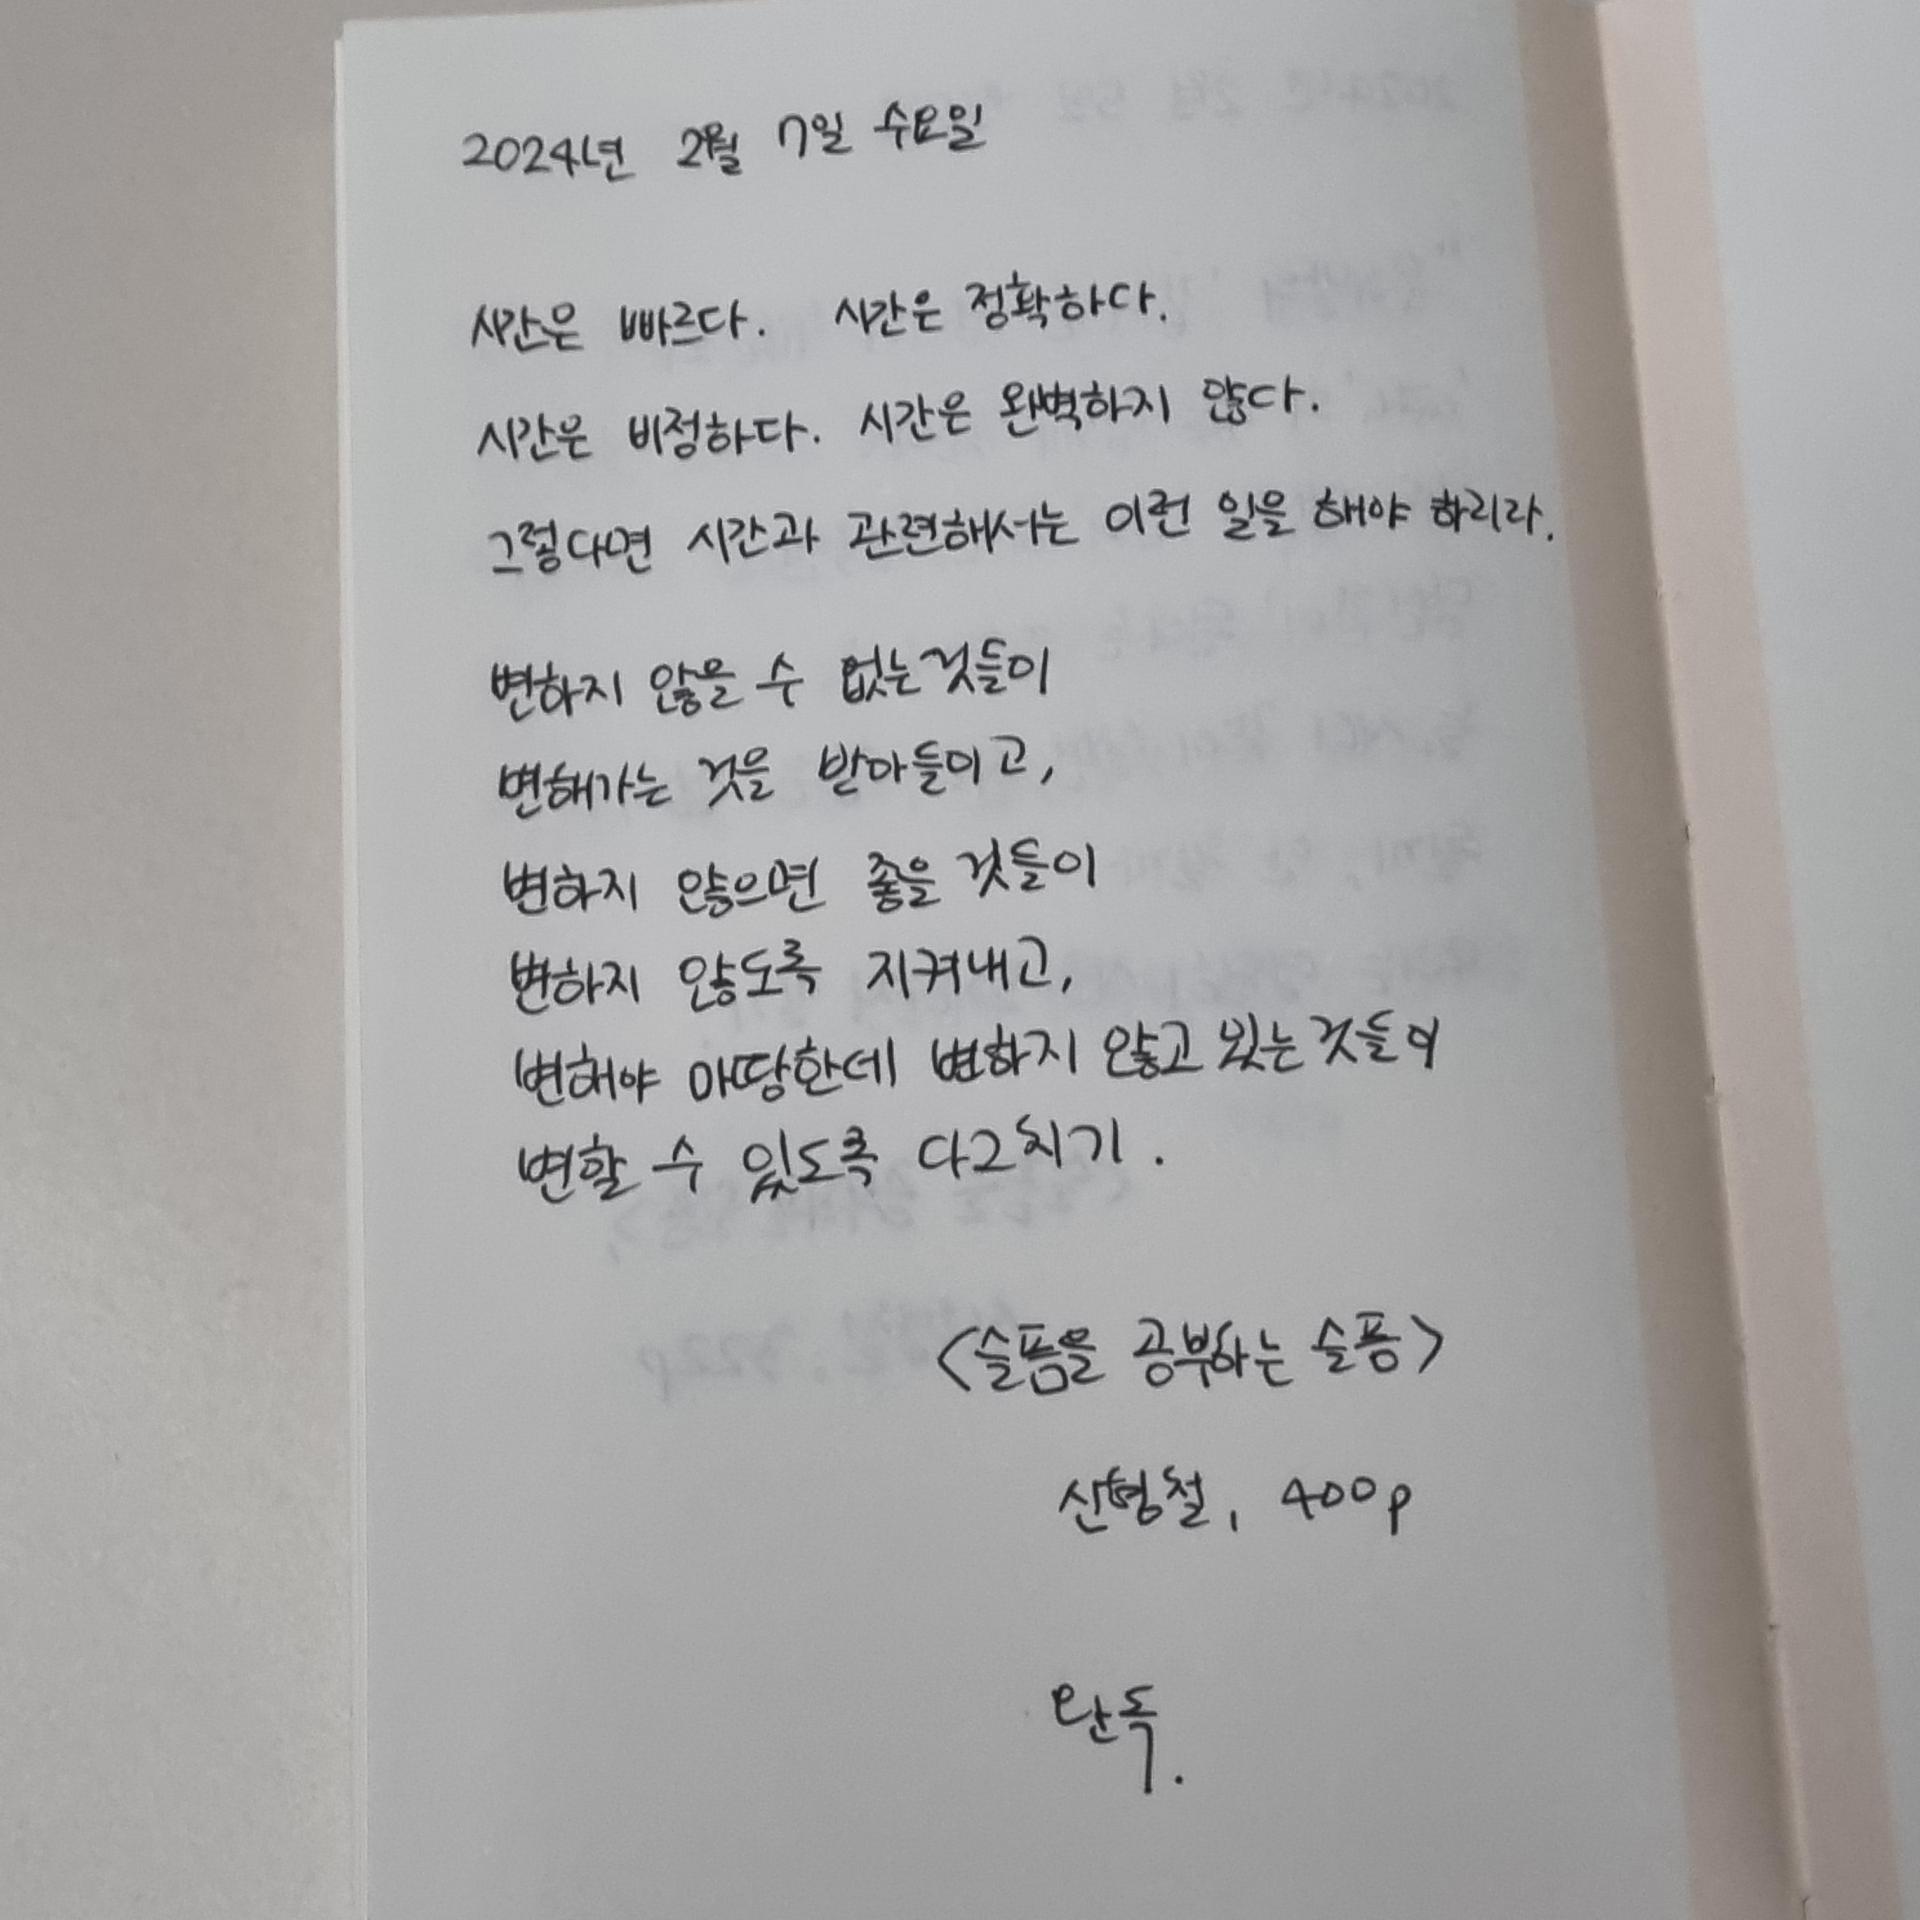 2024년 2월 7일 수요일
시간은 빠르다. 시간은 정확하다.
시간은 비정하다. 시간은 완벽하지 않다.
그렇다면 시간과 관련해서는 이런 일을 해야 하리라.
변하지 않을 수 없는 것들이
변해가는 것을 받아들이고,
변하지 않으면 좋을 것들이
변하지 않도록 지켜내고,
변해야 마땅한데 변하지 않고 있는 것들이
변할 수 있도록 다그치기.
<슬픔을 공부하는 슬픔>
신형철, 400p
완독.